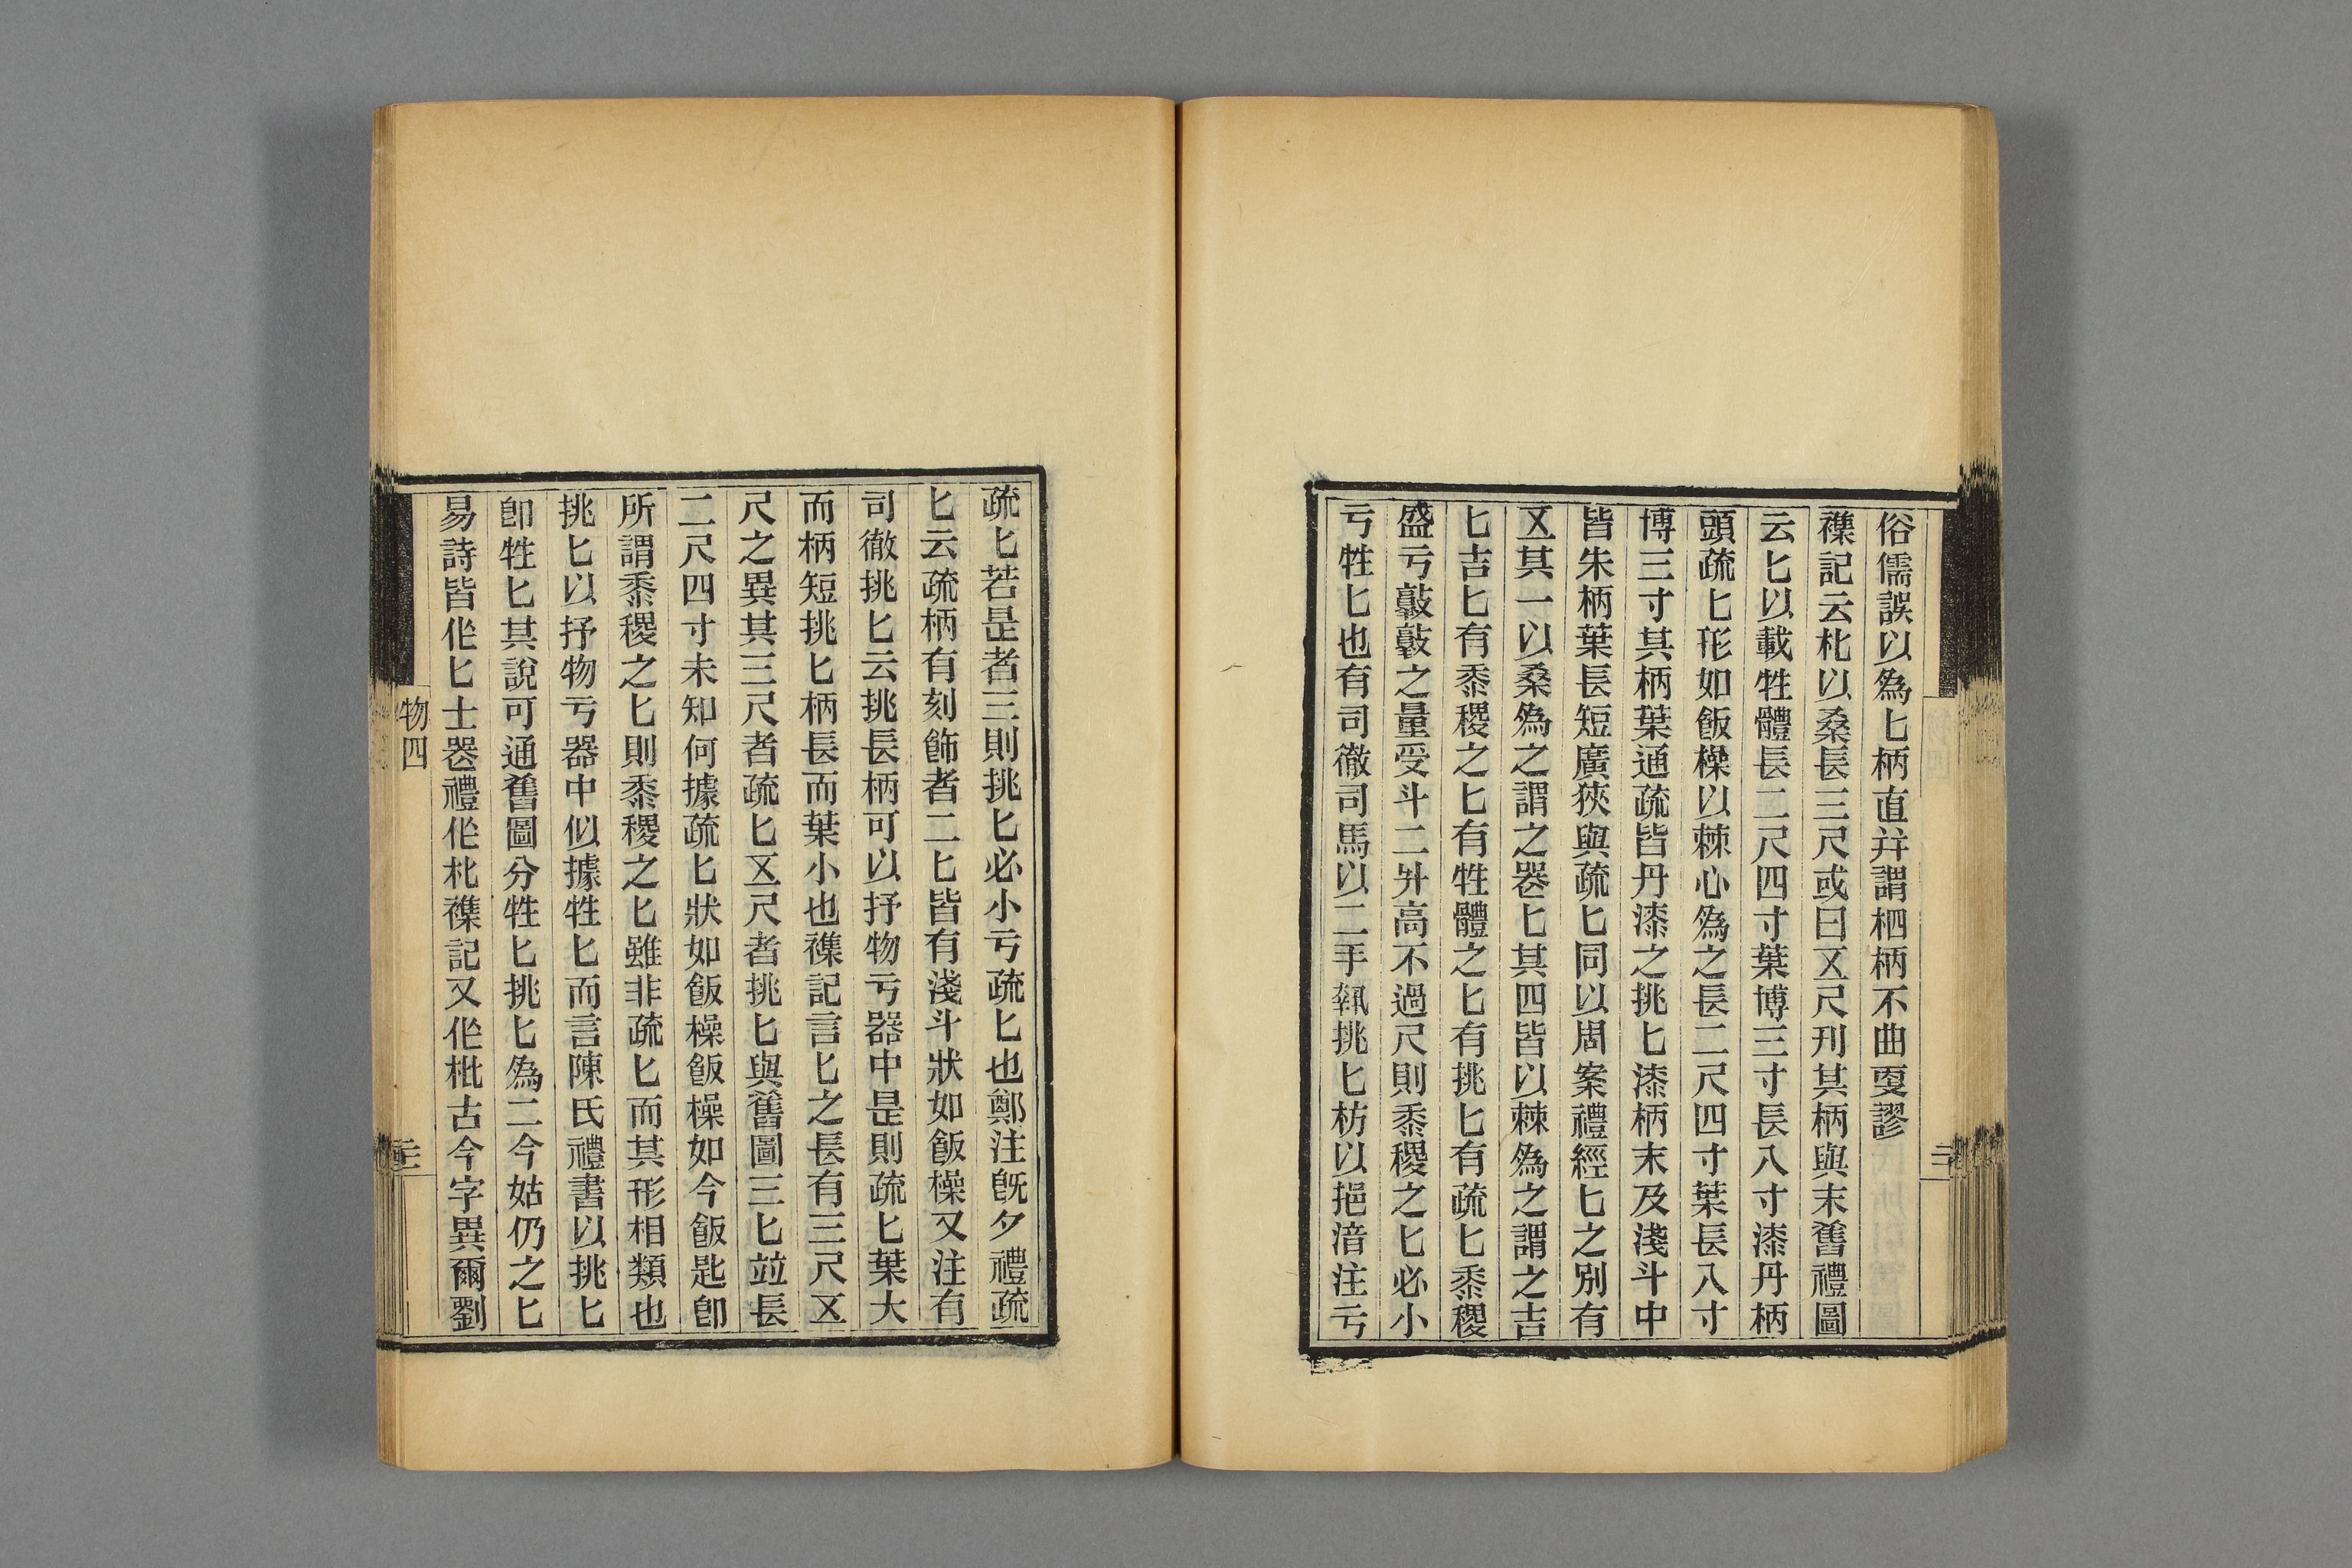 俗儒誤以爲匕柄直并謂柶柄不曲㪅謬
襍記云朼以桑長三尺或曰㐅尺刋其柄與末舊禮圖
云匕以載牲體長二尺四寸葉博三寸長八寸漆丹柄
頭疏匕形如飯橾以棘心爲之長二尺四寸葉長八寸
博三寸其柄葉通疏皆丹漆之挑匕漆柄末及淺斗中
皆朱柄葉長短廣狹與疏匕同以周案禮經匕之別有
㐅其一以桑爲之謂之器匕其四皆以棘爲之謂之吉
匕吉匕有黍稷之匕有牲體之匕有挑匕有疏匕黍稷
盛亏㪣㪣之量受斗二升高不過尺則黍稷之匕必小
亏牲匕也有司徹司馬以二手執挑匕枋以挹湆注亏
疏匕若是者三則挑匕必小亏疏匕也鄭注旣夕禮疏
匕云疏柄有刻飾者二匕皆有淺斗狀如飯橾又注有
司徹挑匕云挑長柄可以抒物亏器中是則疏匕葉大
而柄短挑匕柄長而葉小也襍記言匕之長有三尺㐅
尺之異其三尺者疏匕㐅尺者挑匕與舊圖三匕竝長
二尺四寸未知何據疏匕狀如飯橾飯橾如今飯匙卽
所謂黍稷之匕則黍稷之匕雖非疏匕而其形相類也
挑匕以抒物亏器中似據牲匕而言陳氏禮書以挑匕
卽牲匕其說可通舊圖分牲匕挑匕爲二今姑仍之匕
易詩皆作匕士器禮作朼襍記又作枇古今字異爾劉
物四